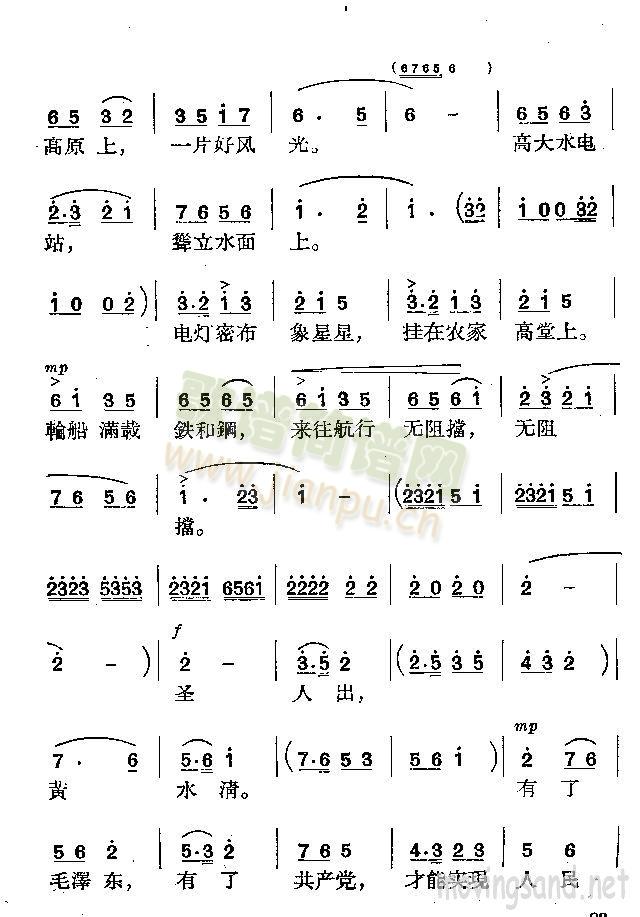 (6765 6)
6 5 3 2 | 3 5 1 7 | 6 . 5 | 6 - | 6 5 6 3
高原上， 一片好风 光。 高大水电
2·3 2 1 | 7 6 5 6 | 1 . 2 | 1 . (32 | 1 0 0 32
站， 聳立水面 上。
1 0 0 2) | 3·2 1 3 | 2 1 5 | 3·2 1 3 | 2 1 5
电灯密布 象星星， 挂在农家 高堂上。
mp
6 1 3 5 | 6 5 6 5 | 6 1 3 5 | 6 5 6 1 | 2 3 2 1
輪船滿載 鉄和鋼， 来往航行 无阻擋， 无阻
7 6 5 6 | 1 . 23 | 1 - | (2321 5 1 | 2321 5 1
擋。
2323 5353 | 2321 6561 | 2222 2 2 | 2 0 2 0 | 2 -
f
2 - ) | 2 - | 3·5 2 | (2·5 3 5 | 4 3 2)
圣 人出，
mp
7 . 6 | 5·6 1 | (7·6 5 3 | 5 6 1) | 2 7 6
黃 水清。 有了
5 6 2 | 5·3 2 | 7 6 5 | 4·3 2 3 | 5 6
毛澤东， 有了 共产党， 才能实现 人民
歌谱简谱网
www.jianpu.cn
movingsand.net